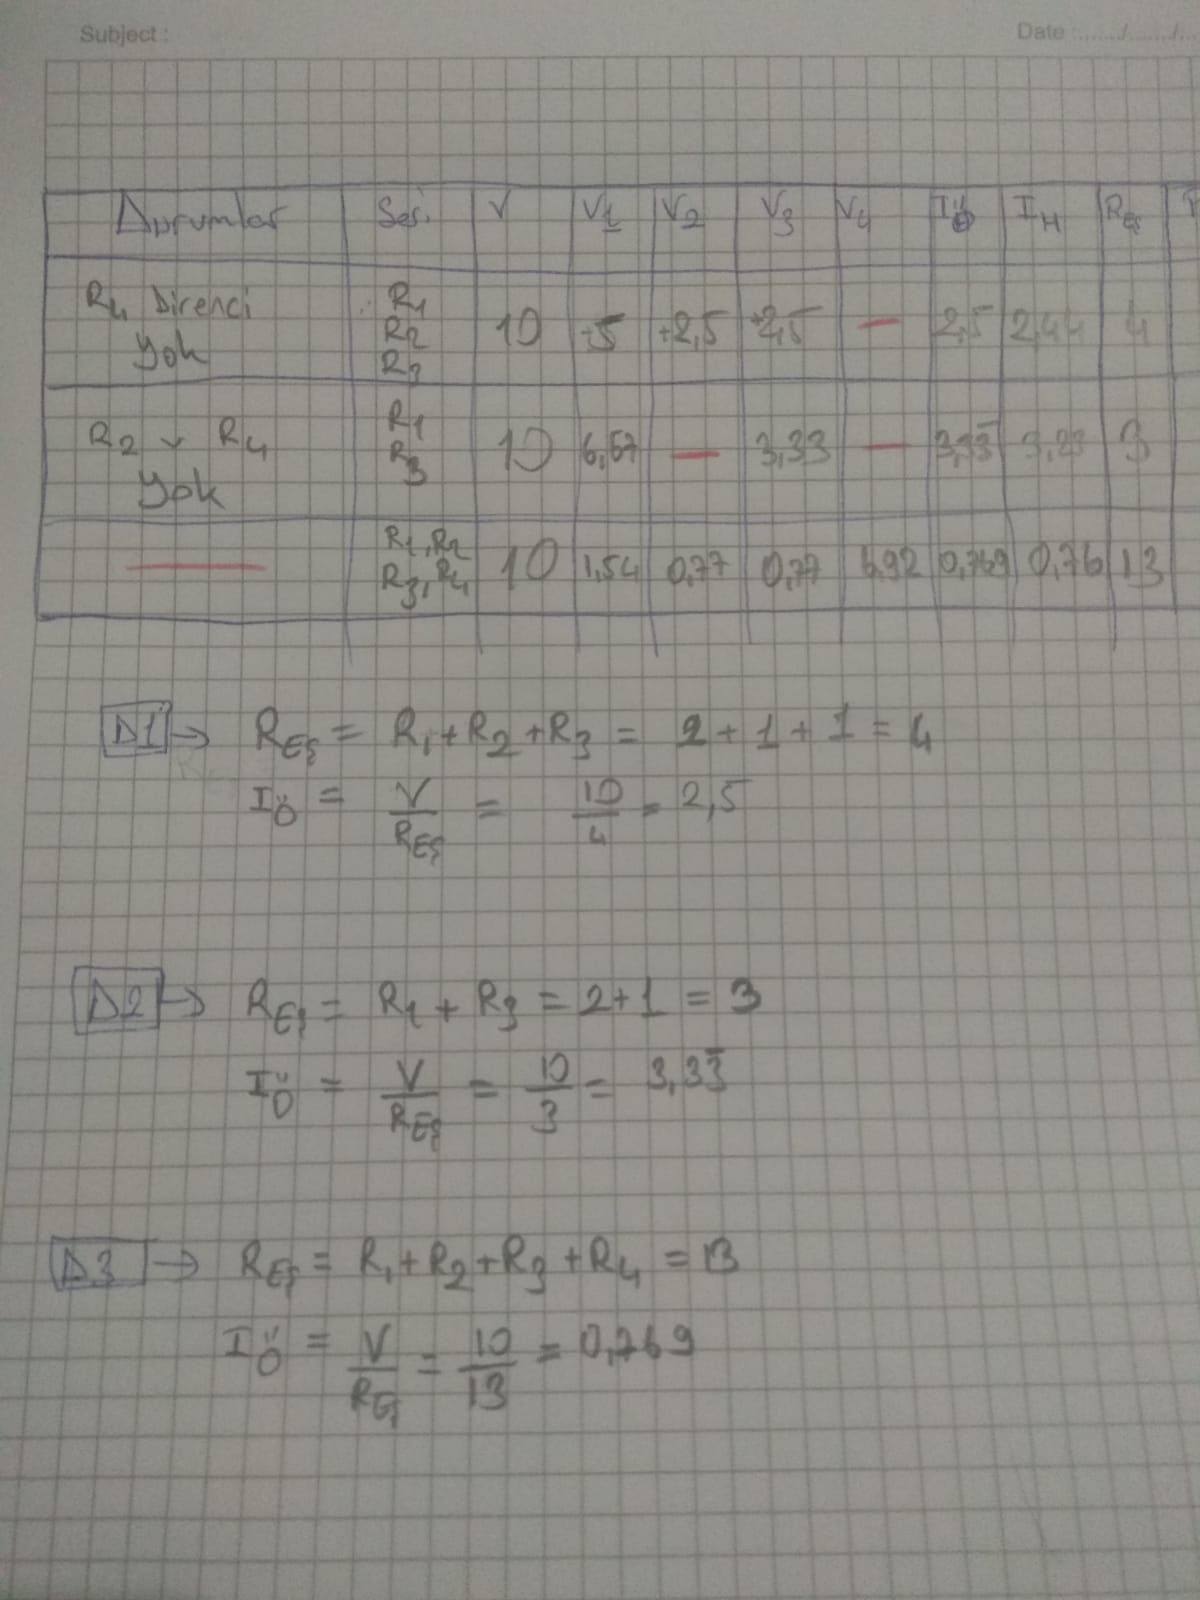 Subject :
Date :......./......./...
Durumlar Seri V V1 V2 V3 V4 IÖ IH REş
R4 Direnci Yok R1 R2 R3 10 +5 +2,5 +2,5 — 2,5 2,44 4
R2 v R4 Yok R1 R3 10 6,67 — 3,33 — 3,33̅ 3,23 3
— R1,R2 R3,R4 10 1,54 0,77 0,77 6,92 0,769 0,76 13
D1 → REş = R1 + R2 + R3 = 2 + 1 + 1 = 4
IÖ = V/REş = 10/4 = 2,5
D2 → REş = R1 + R3 = 2+1 = 3
IÖ = V/REş = 10/3 = 3,33̅
D3 → REş = R1 + R2 + R3 + R4 = 13
IÖ = V/REş = 10/13 = 0,769